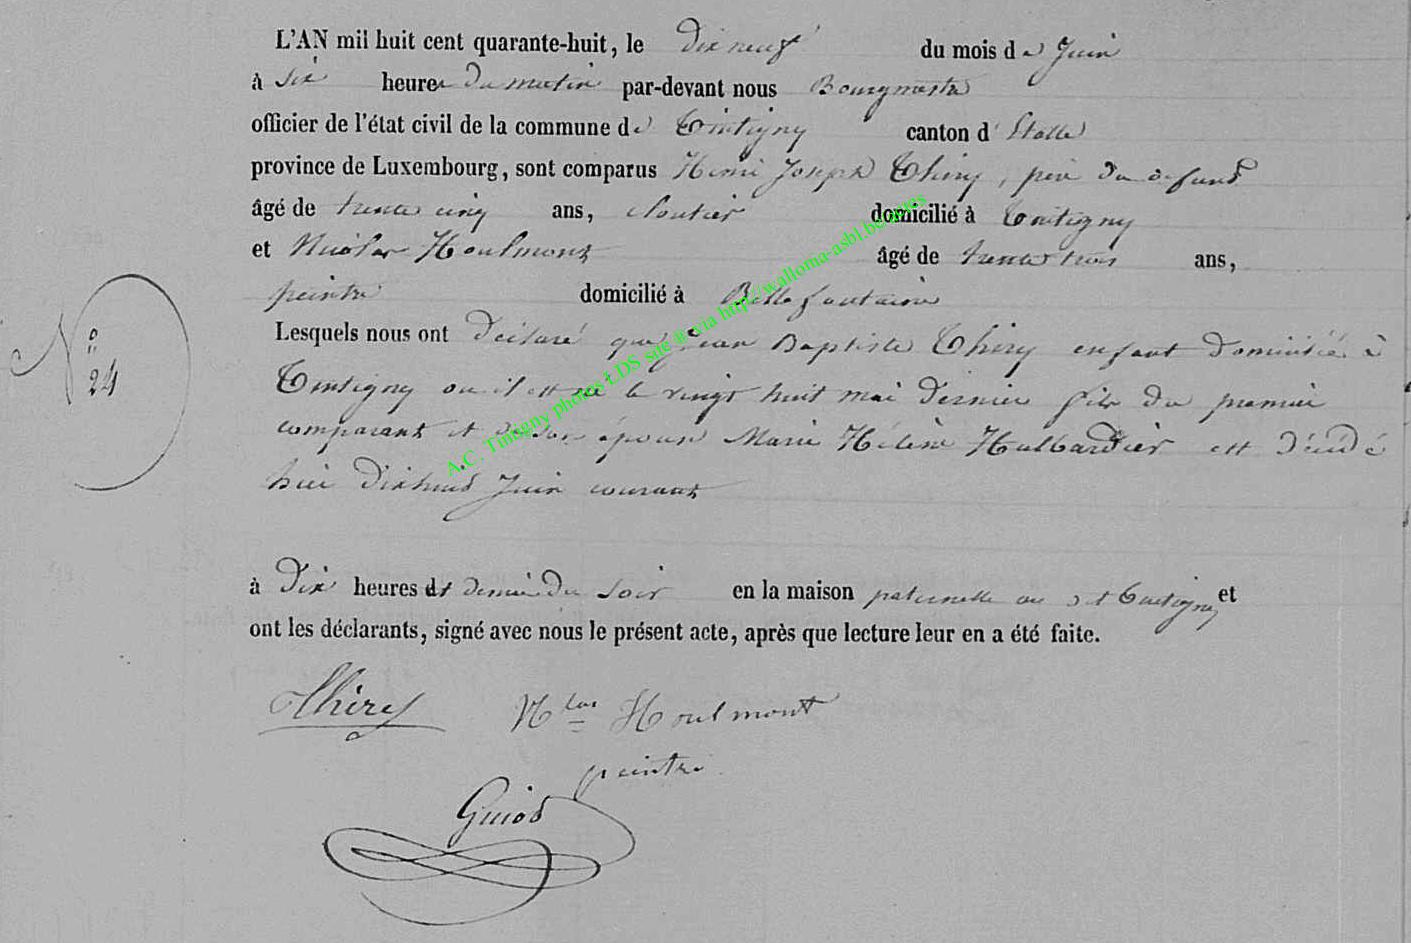 L'AN mil huit cent quarante-huit, le dix neuf du mois de Juin
à six heures du matin par-devant nous Bourgmestre
officier de l'état civil de la commune de Tintigny canton d'Etalle
province de Luxembourg, sont comparus Henri Joseph Thiry, père du défunt
âgé de trente cinq ans, cloutier domicilié à Tintigny
et Nicolas Houlmont âgé de trente trois ans,
peintre domicilié à Bellefontaine
Lesquels nous ont déclaré que Jean Baptiste Thiry enfant domicilié à
N° 24
Tintigny où il est né le vingt huit mai dernier fils du premier
comparant et de son épouse Marie Hélène Halbardier est décédé
hier dix huit Juin courant
à dix heures et demie du soir en la maison paternelle au dit Tintigny et
ont les déclarants, signé avec nous le présent acte, après que lecture leur en a été faite.
Thiry Nlas Houlmont
peintre
Guiod
A.C. Tintigny photos LDS site ® via http://walloma-asbl.be/actes